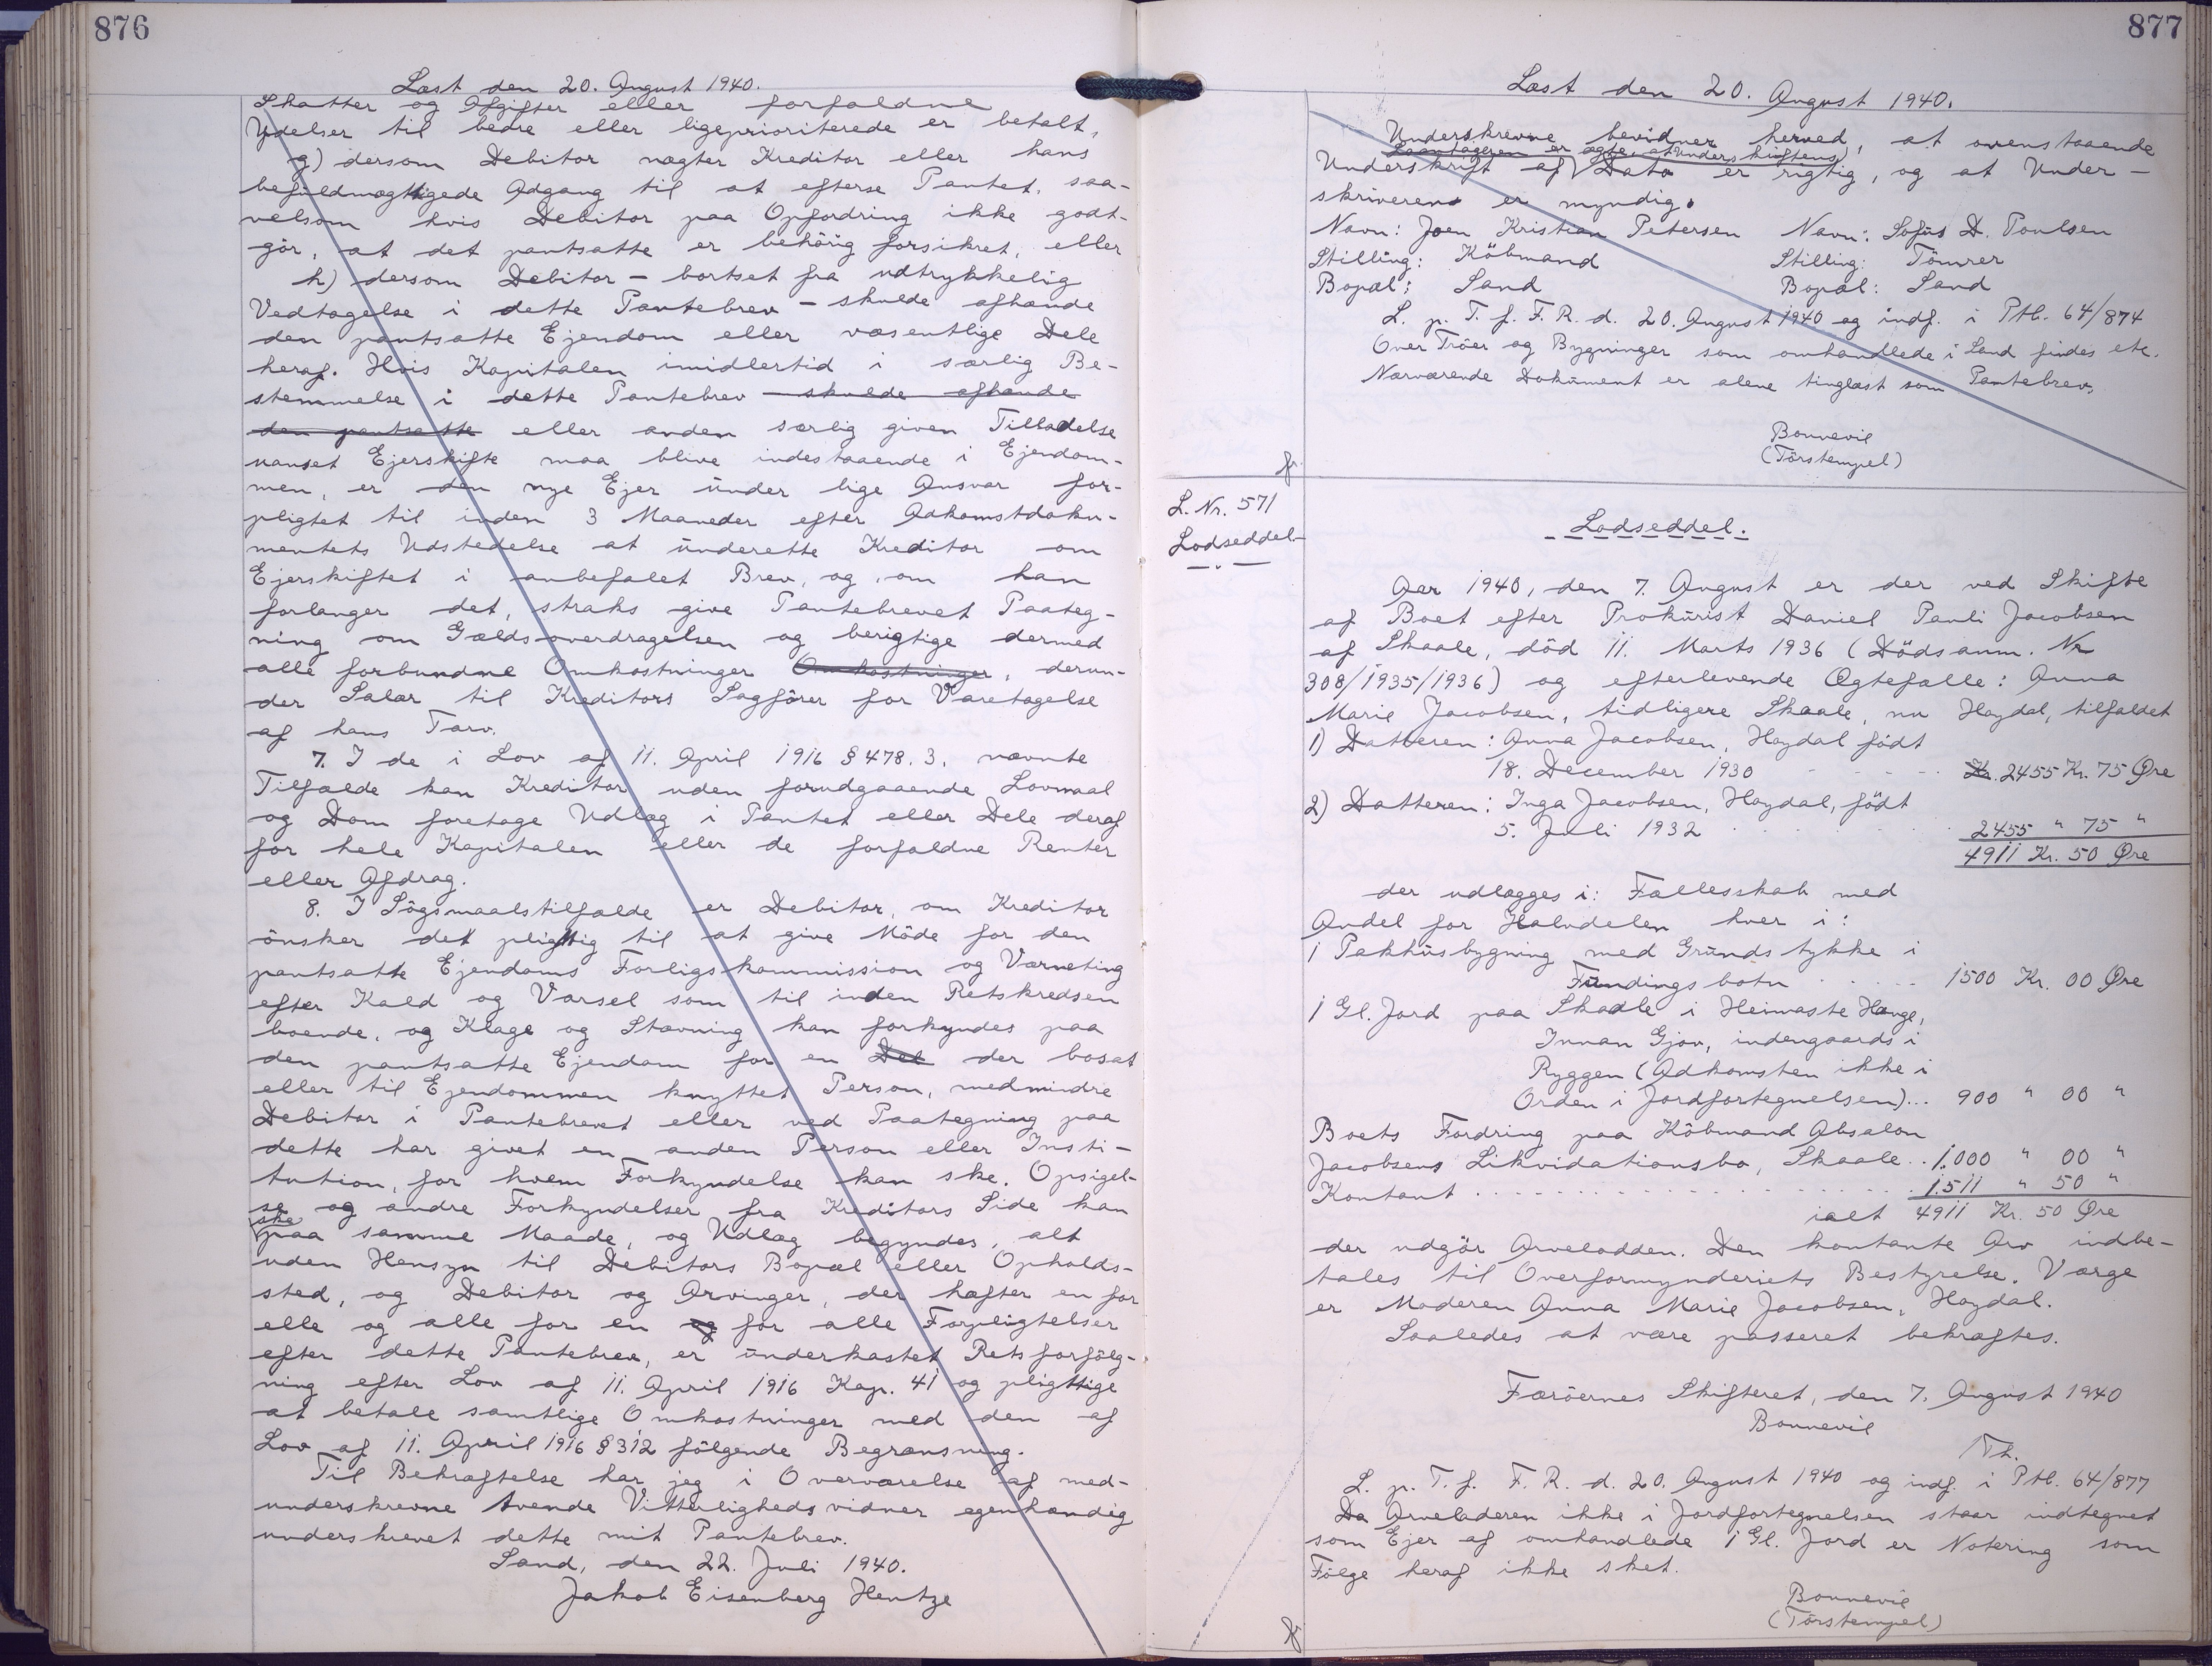 876
Læst den 20. August 1940.
Skatter og Afgifter eller forfaldne
Ydelser til bedre eller ligeprioriterede er betalt,
g) dersom Debitor nægter Kreditor eller hans
befuldmægtigede Adgang til at efterse Pantet, saa-
velsom hvis Debitor paa Opfordring ikke godt-
gör, at det pantsatte er behörig forsikret, eller
h) dersom Debitor - bortset fra udtrykkelig
Vedtagelse i dette Pantebrev - skulde afhænde
den pantsatte Ejendom eller væsentlige Dele
heraf. Hvis Kapitalen imidlertid i særlig Be-
stemmelse i dette Pantebrev skulde afhænde
den pantsatte eller anden særlig given Tilladelse
uanset Ejerskifte maa blive indestaaende i Ejendom-
men, er den nye Ejer under lige Ansvar for-
pligtet til inden 3 Maaneder efter Adkomstdoku-
mentets Udstedelse at underette Kreditor om
Ejerskiftet i anbefalet Brev, og, om han
forlanger det, straks give Pantebrevet Paateg-
ning om Gældsoverdragelsen og berigtige dermed
alle forbundne Omkostninger Omkostninger, derun-
der Salær til Kreditors Sagförer for Varetagelse
af hans Tarv.
7. I de i Lov af 11. April 1916 § 478. 3. nævnte
Tilfælde kan Kreditor uden forudgaaende Lovmaal
og Dom foretage Udlæg i Pantet eller Dele deraf
for hele Kapitalen eller de forfaldne Renter
eller Afdrag.
8. I Sögsmaalstilfælde er Debitor, om Kreditor
önsker det pligtig til at give Möde for den
pantsatte Ejendoms Forligskommission og Værneting
efter Kald og Varsel som til inden Retskredsen
boende, og Klage og Stævning kan forkyndes paa
den pantsatte Ejendom for en Del der bosat
eller til Ejendommen knyttet Person, medmindre
Debitor i Pantebrevet eller ved Paategning paa
dette har givet en anden Person eller Insti-
tution, for hvem Forkyndelse kan ske. Opsigel-
se og andre Forkyndelser fra Kreditors Side kan
ske
paa samme Maade, og Udlæg begyndes, alt
uden Hensyn til Debitors Bopæl eller Opholds-
sted, og Debitor og Arvinger, der hæfter en for
elle og alle for en og for alle Forpligtelser
efter dette Pantebrev, er underkastet Retsforfölg-
ning efter Lov af 11. April 1916 Kap. 41 og pligttige
at betale samtlige Omkostninger med den af
Lov af 11. April 1916 § 312 fölgende Begrænsning.
Til Bekræftelse har jeg i Overværelse af med-
underskrevne tvende Vitterlighedsvidner egenhændig
underskrevet dette mit Pantebrev.
Sand, den 22. Juli 1940.
Jakob Eisenberg Hentze
877
Læst den 20. August 1940.
Underskrevne bevidner herved, at ovenstaaende
Laantageren er ægte, at Underskriftens
Underskrift af Dato er rigtig, og at Under-
skriveren er myndig.
Navn: Joen Kristian Petersen Navn: Sofus D. Poulsen
Stilling: Köbmand Stilling: Tömrer
Bopæl: Sand Bopæl: Sand
L. p. T. f. F. R. d. 20. August 1940 og indf. i Ptb. 64/874
Over Tröer og Bygninger som omhandlede i Sand findes etc.
Nærværende Dokument er alene tinglæst som Pantebrev.
Bonnevie
(Törstempel)
L. Nr. 571
Lodseddel
Lodseddel.
Aar 1940, den 7. August er der ved Skifte
af Boet efter Prokurist Daniel Pauli Jacobsen
af Skaale, död 11. Marts 1936 (Dödsanm. Nr
308/1935/1936) og efterlevende Ægtefælle: Anna
Marie Jacobsen, tidligere Skaale, nu Hoydal, tilfaldet
1) Datteren: Anna Jacobsen, Hoydal födt
18. December 1930 - - - - Kr. 2455 Kr. 75 Øre
2) Datteren: Inga Jacobsen, Hoydal, födt
5. Juli 1932 . . . . . . . 2455 " 75 "
4911 Kr. 50 Øre
der udlægges i: Fællesskab med
Andel for Halvdelen hver i:
1 Pakhusbygning med Grundstykke i
Fundingsbotn . . . . . 1500 Kr. 00 Øre
1 Gl. Jord paa Skaale i Heimaste Hauge,
Innan Gjov, indengaards i
Ryggen (Adkomsten ikke i
Orden i Jordfortegnelsen)... 900 " 00 "
Boets Fordring paa Köbmand Absalon
Jacobsens Likvidationsbo, Skaale.. 1.000 " 00 "
Kontant . . . . . . . . . . . . . . . 1.511 " 50 "
ialt 4911 Kr. 50 Øre
der udgör Arvelodden. Den kontante Arv indbe-
tales til Overformynderiets Bestyrelse. Værge
er Moderen Anna Marie Jacobsen, Hoydal.
Saaledes at være passeret bekræftes.
Færöernes Skifteret, den 7. August 1940
Bonnevie
/Th.
L. p. T. f. F. R. d. 20. August 1940 og indf. i Ptb. 64/877
Da Arveladeren ikke i Jordfortegnelsen staar indtegnet
som Ejer af omhandlede 1 Gl. Jord er Notering som
Fölge heraf ikke sket.
Bonnevie
(Törstempel)